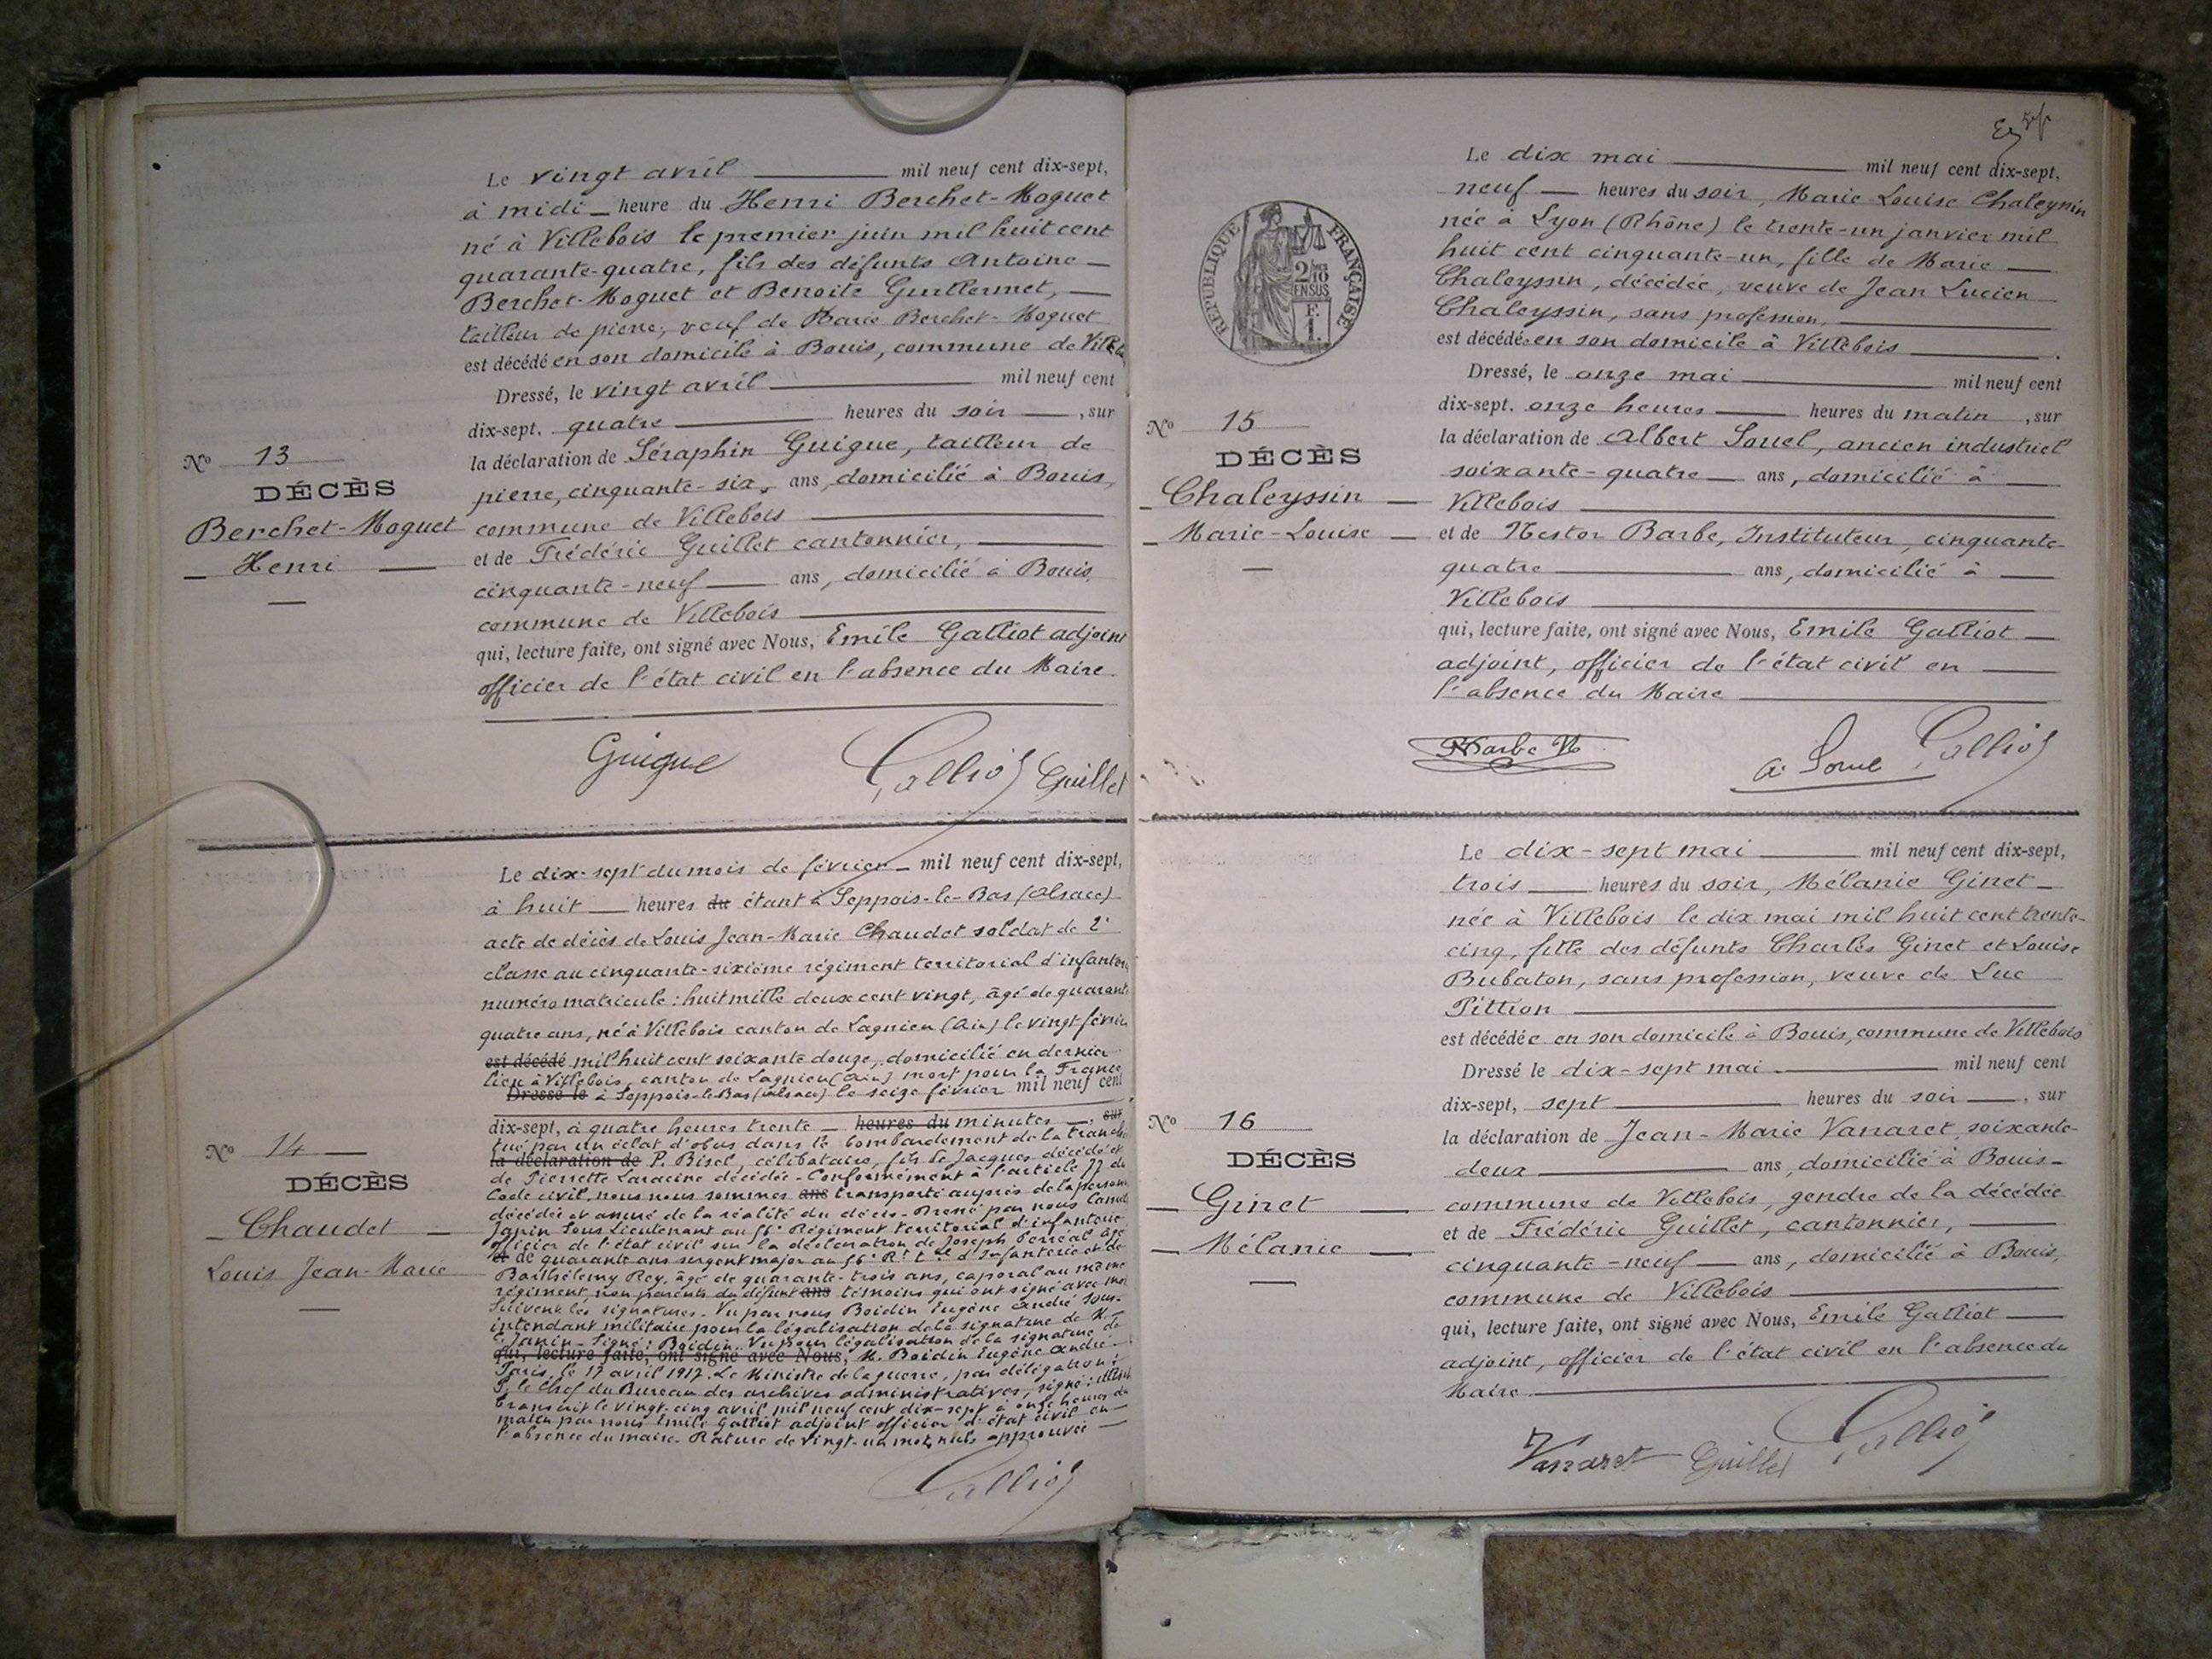 Le vingt avril mil neuf cent dix-sept,
à midi heure du Henri Berchet-Moguet
né à Villebois le premier juin mil huit cent
quarante-quatre, fils des défunts Antoine
Berchet-Moguet et Benoite Guillermet,
tailleur de pierre, veuf de Marie Berchet-Moguet
est décédé en son domicile à Bouis, commune de
Dressé, le vingt avril mil neuf cent
dix-sept. quatre heures du soir, sur
la déclaration de Séraphin Guigue, tailleur de
pierre, cinquante-six, ans, domicilié à Bouis,
commune de Villebois
et de Frédéric Guillet cantonnier,
cinquante-neuf ans, domicilié à Bouis,
commune de Villebois
qui, lecture faite, ont signé avec Nous, Emile Galliot adjoint
officier de l'état civil en l'absence du Maire.
Guigue Galliot Guillet
No 13
DÉCÈS
Berchet-Moguet
Henri
Le dix-sept du mois de février mil neuf cent dix-sept,
à huit heures du étant à Seppois-le-Bas (Alsace)
acte de décès de Louis Jean-Marie Chaudet soldat de 2e
classe au cinquante-sixième régiment territorial d'infanterie
numéro matricule : huit mille deux cent vingt, âgé de quarante
quatre ans, né à Villebois canton de Lagnieu (Ain) le vingt février
est décédé mil huit cent soixante douze, domicilié en dernier
lieu à Villebois, canton de Lagnieu (Ain) mort pour la France
Dressé le à Seppois-le-Bas (Alsace) le seize février mil neuf cent
dix-sept, à quatre heures trente heures du minutes, sur
tué par un éclat d'obus dans le bombardement de la tranchée
la déclaration de P. Bisel, célibataire, fils de Jacques décédé et
de Pierrette Laracine décédée - Conformément à l'article 77 du
Code civil, nous nous sommes ans transporté auprès de la personne
décédée et assuré de la réalité du décès - Dressé par nous
Janin Sous Lieutenant au 56e Régiment territorial d'infanterie
officier de l'état civil sur la déclaration de Joseph Perréal âgé
et de quarante ans sergent major au 56e Rt tal d'Infanterie et de
Barthélemy Rey, âgé de quarante-trois ans, caporal au même
régiment, non parents du défunt ans témoins qui ont signé avec moi
Suivent les signatures - Vu par nous Boidin Eugène André sous-
intendant militaire pour la légalisation de la signature de M.
E. Janin - Signé : Boidin. Vu pour légalisation de la signature de
qui, lecture faite, ont signé avec Nous, M. Boidin Eugène André.
Paris, le 17 avril 1917. Le Ministre de la guerre, par délégation :
P. le Chef du Bureau des archives administratives, signé :
Transcrit le vingt-cinq avril mil neuf cent dix-sept à onze heures du
matin par nous Emile Galliot adjoint officier d'état civil en
l'absence du maire - Rature de vingt-un mots nuls approuvée
Galliot
No 14
DÉCÈS
Chaudet
Louis Jean-Marie
Le dix mai mil neuf cent dix-sept,
neuf heures du soir, Marie-Louise Chaleyssin
née à Lyon (Rhône) le trente-un janvier mil
huit cent cinquante-un, fille de Marie
Chaleyssin, décédée, veuve de Jean Lucien
Chaleyssin, sans profession,
est décédée en son domicile à Villebois.
Dressé, le onze mai mil neuf cent
dix-sept. onze heures heures du matin, sur
la déclaration de Albert Souel, ancien industriel
soixante-quatre ans, domicilié à
Villebois
et de Nestor Barbe, Instituteur, cinquante-
quatre ans, domicilié à
Villebois
qui, lecture faite, ont signé avec Nous, Emile Galliot
adjoint, officier de l'état civil en
l'absence du Maire
Barbe N A. Souel Galliot
RÉPUBLIQUE FRANÇAISE
2/10
EN SUS
F.
1.
No 15
DÉCÈS
Chaleyssin
Marie-Louise
Le dix-sept mai mil neuf cent dix-sept,
trois heures du soir, Mélanie Ginet
née à Villebois le dix mai mil huit cent trente-
cinq, fille des défunts Charles Ginet et Louise
Bubaton, sans profession, veuve de Luc
Pittion
est décédée en son domicile à Bouis, commune de Villebois
Dressé le dix-sept mai mil neuf cent
dix-sept, sept heures du soir, sur
la déclaration de Jean-Marie Vanaret, soixante-
deux ans, domicilié à Bouis-
commune de Villebois, gendre de la décédée
et de Frédéric Guillet, cantonnier,
cinquante-neuf ans, domicilié à Bouis,
commune de Villebois
qui, lecture faite, ont signé avec Nous, Emile Galliot
adjoint, officier de l'état civil en l'absence du
Maire.
Vanaret Guillet Galliot
No 16
DÉCÈS
Ginet
Mélanie